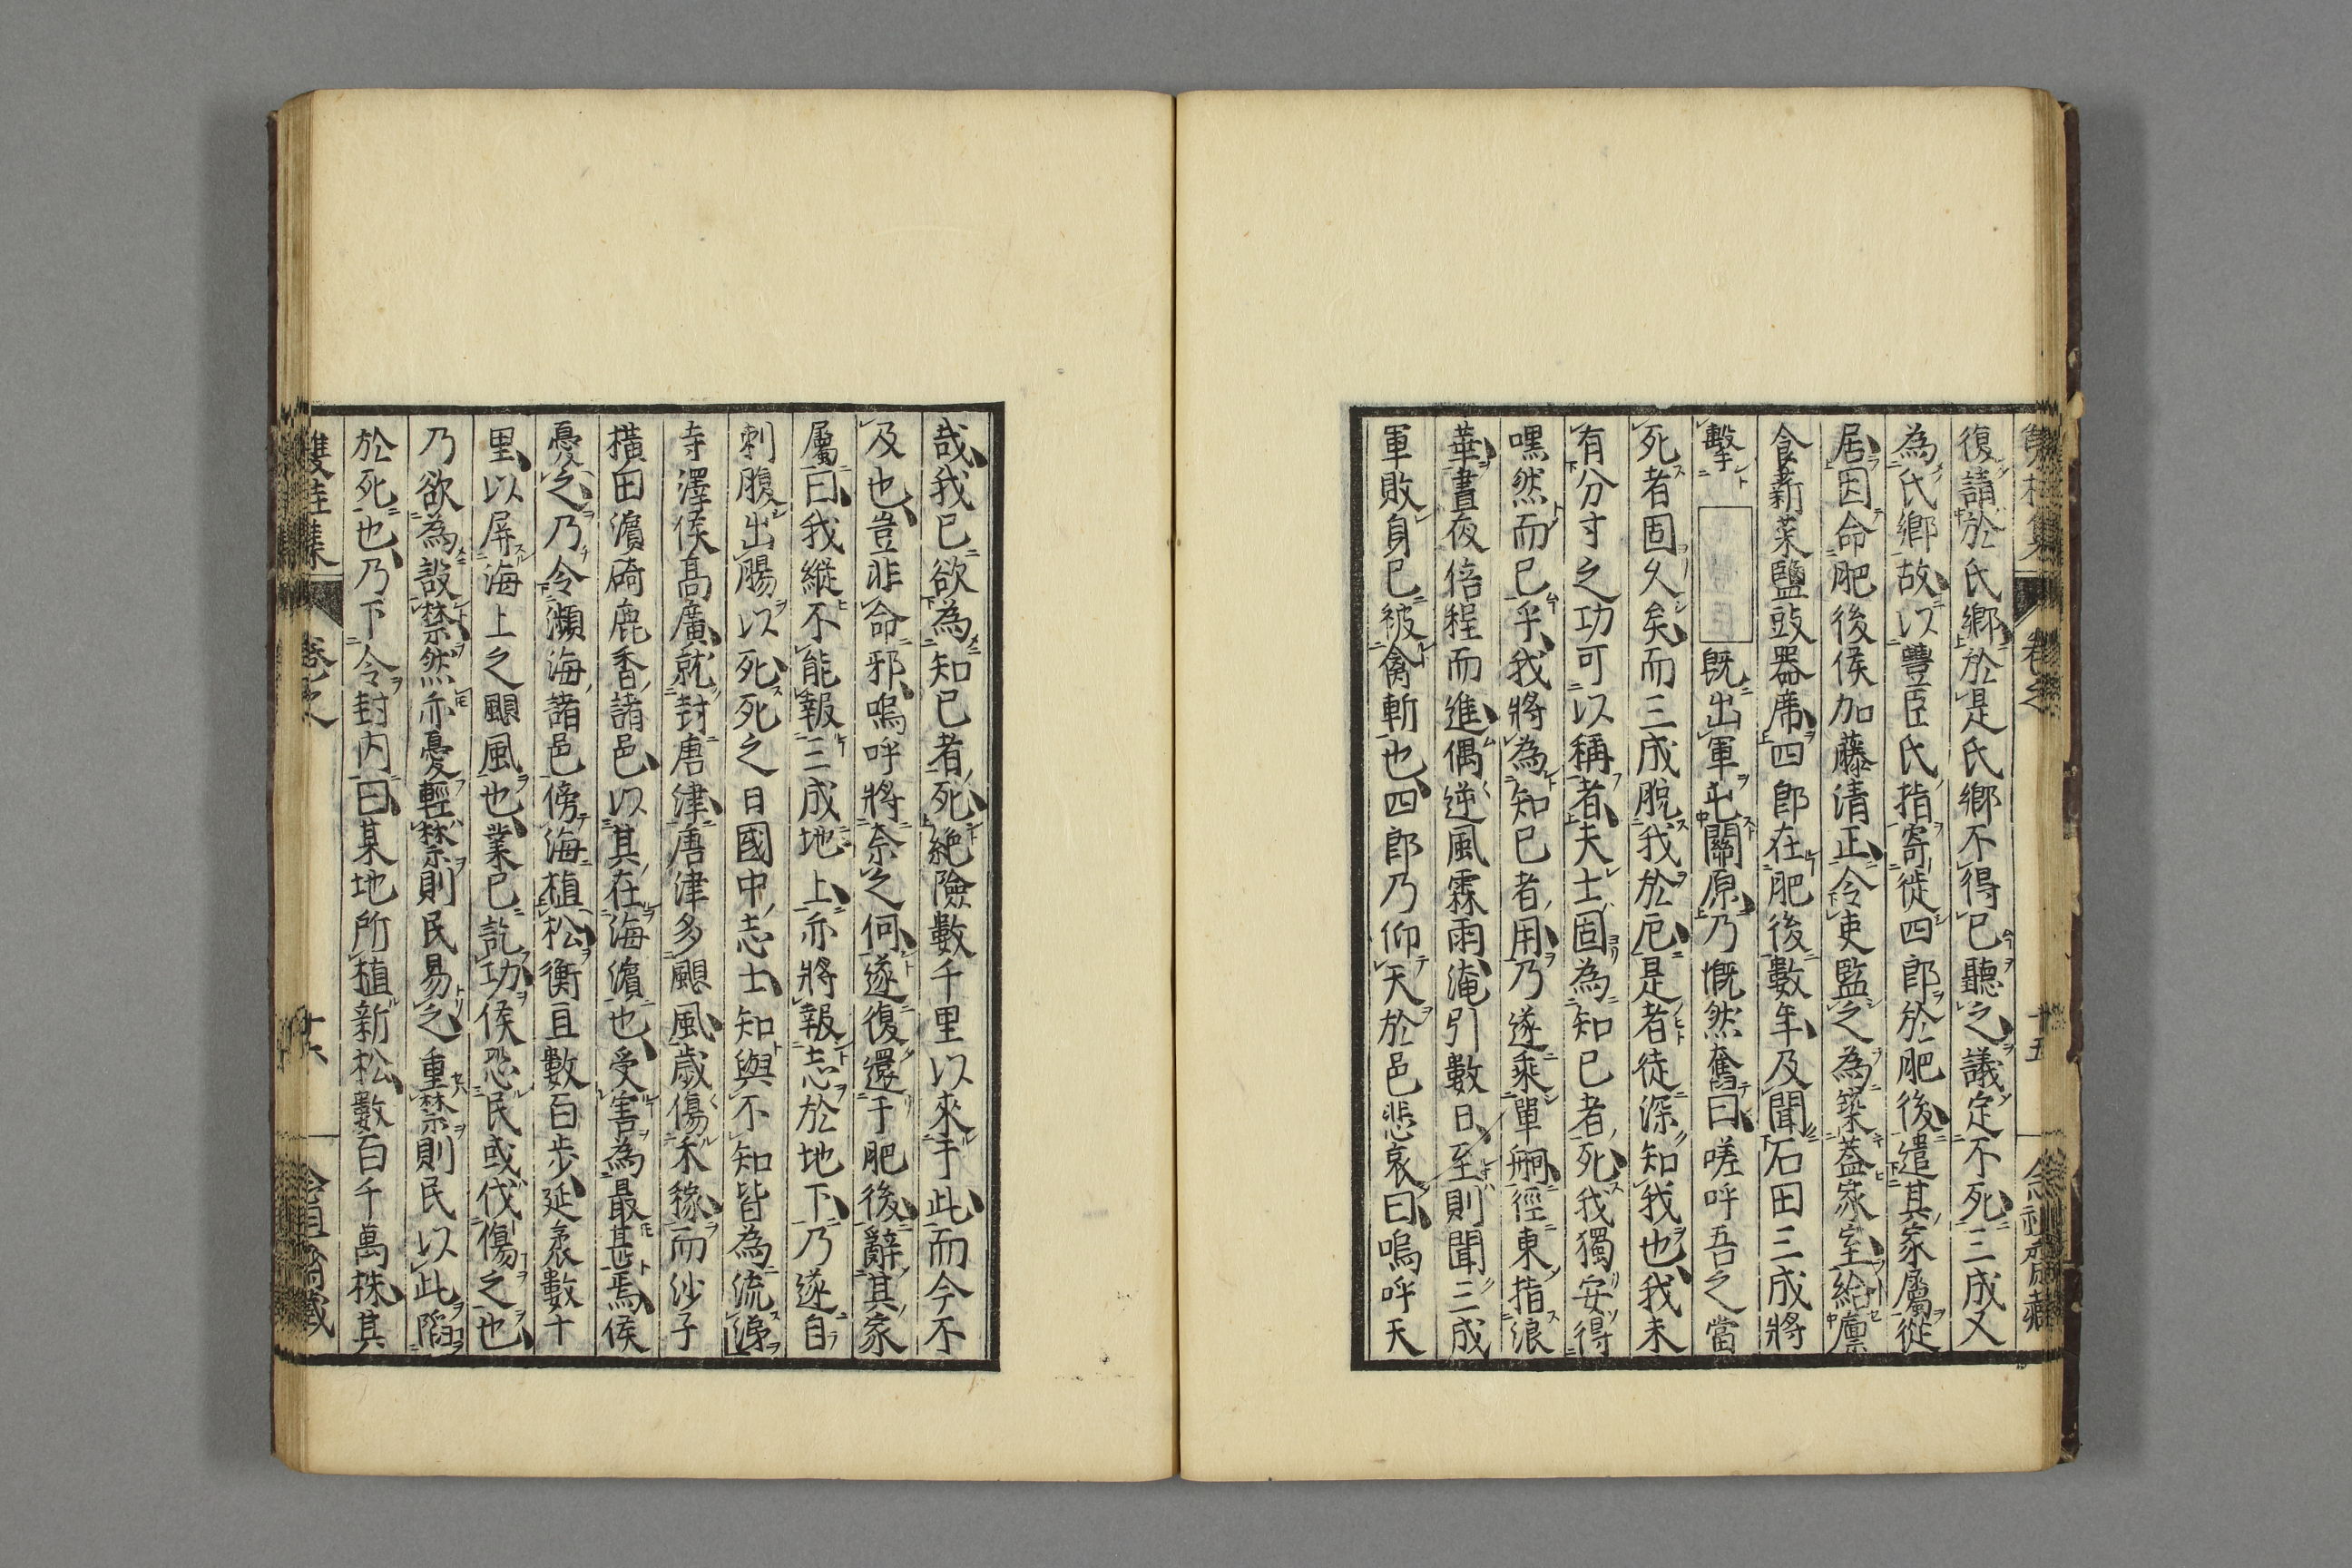 復請於氏郷於是氏郷不得已聽之議定不死三成又
為氏郷故以豐臣氏指寄徙四郎於肥後遣其家屬從
居因命肥後侯加藤清正令吏監之為築蓋家室給廩
食薪菜鹽豉器席四郎在肥後數年及聞石田三成將
擊既出軍屯關原乃慨然奮曰嗟呼吾之當
死者固久矣而三成脱我於厄是者徒深知我也我未
有分寸之功可以稱者夫士固為知已者死我獨安得
嘿然而已乎我將為知已者用乃遂乘單舸徑東指浪
華晝夜倍程而進偶逆風霖雨淹引數日至則聞三成
軍敗身已被禽斬也四郎乃仰天於邑悲哀曰嗚呼天
哉我已欲為知已者死絶險數千里以來于此而今不
及也豈非命邪嗚呼將奈之何遂復還于肥後辭其家
屬曰我縱不能報三成地上亦將報志於地下乃遂自
刺腹出腸以死死之日國中志士知與不知皆為流涕
寺澤侯高廣就封唐津唐津多颶風歳傷禾稼而沙子
横田濵碕鹿香諸邑以其在海濵也受害為最甚焉侯
憂之乃令瀕海諸邑傍海植松衡亘數百歩延袤數十
里以屏海上之颶風也業已訖功侯恐民或伐傷之也
乃欲為設禁然亦憂輕禁則民易之重禁則民以此陷
於死也乃下令封内曰某地所植新松數百千萬株其
雙桂集
卷之